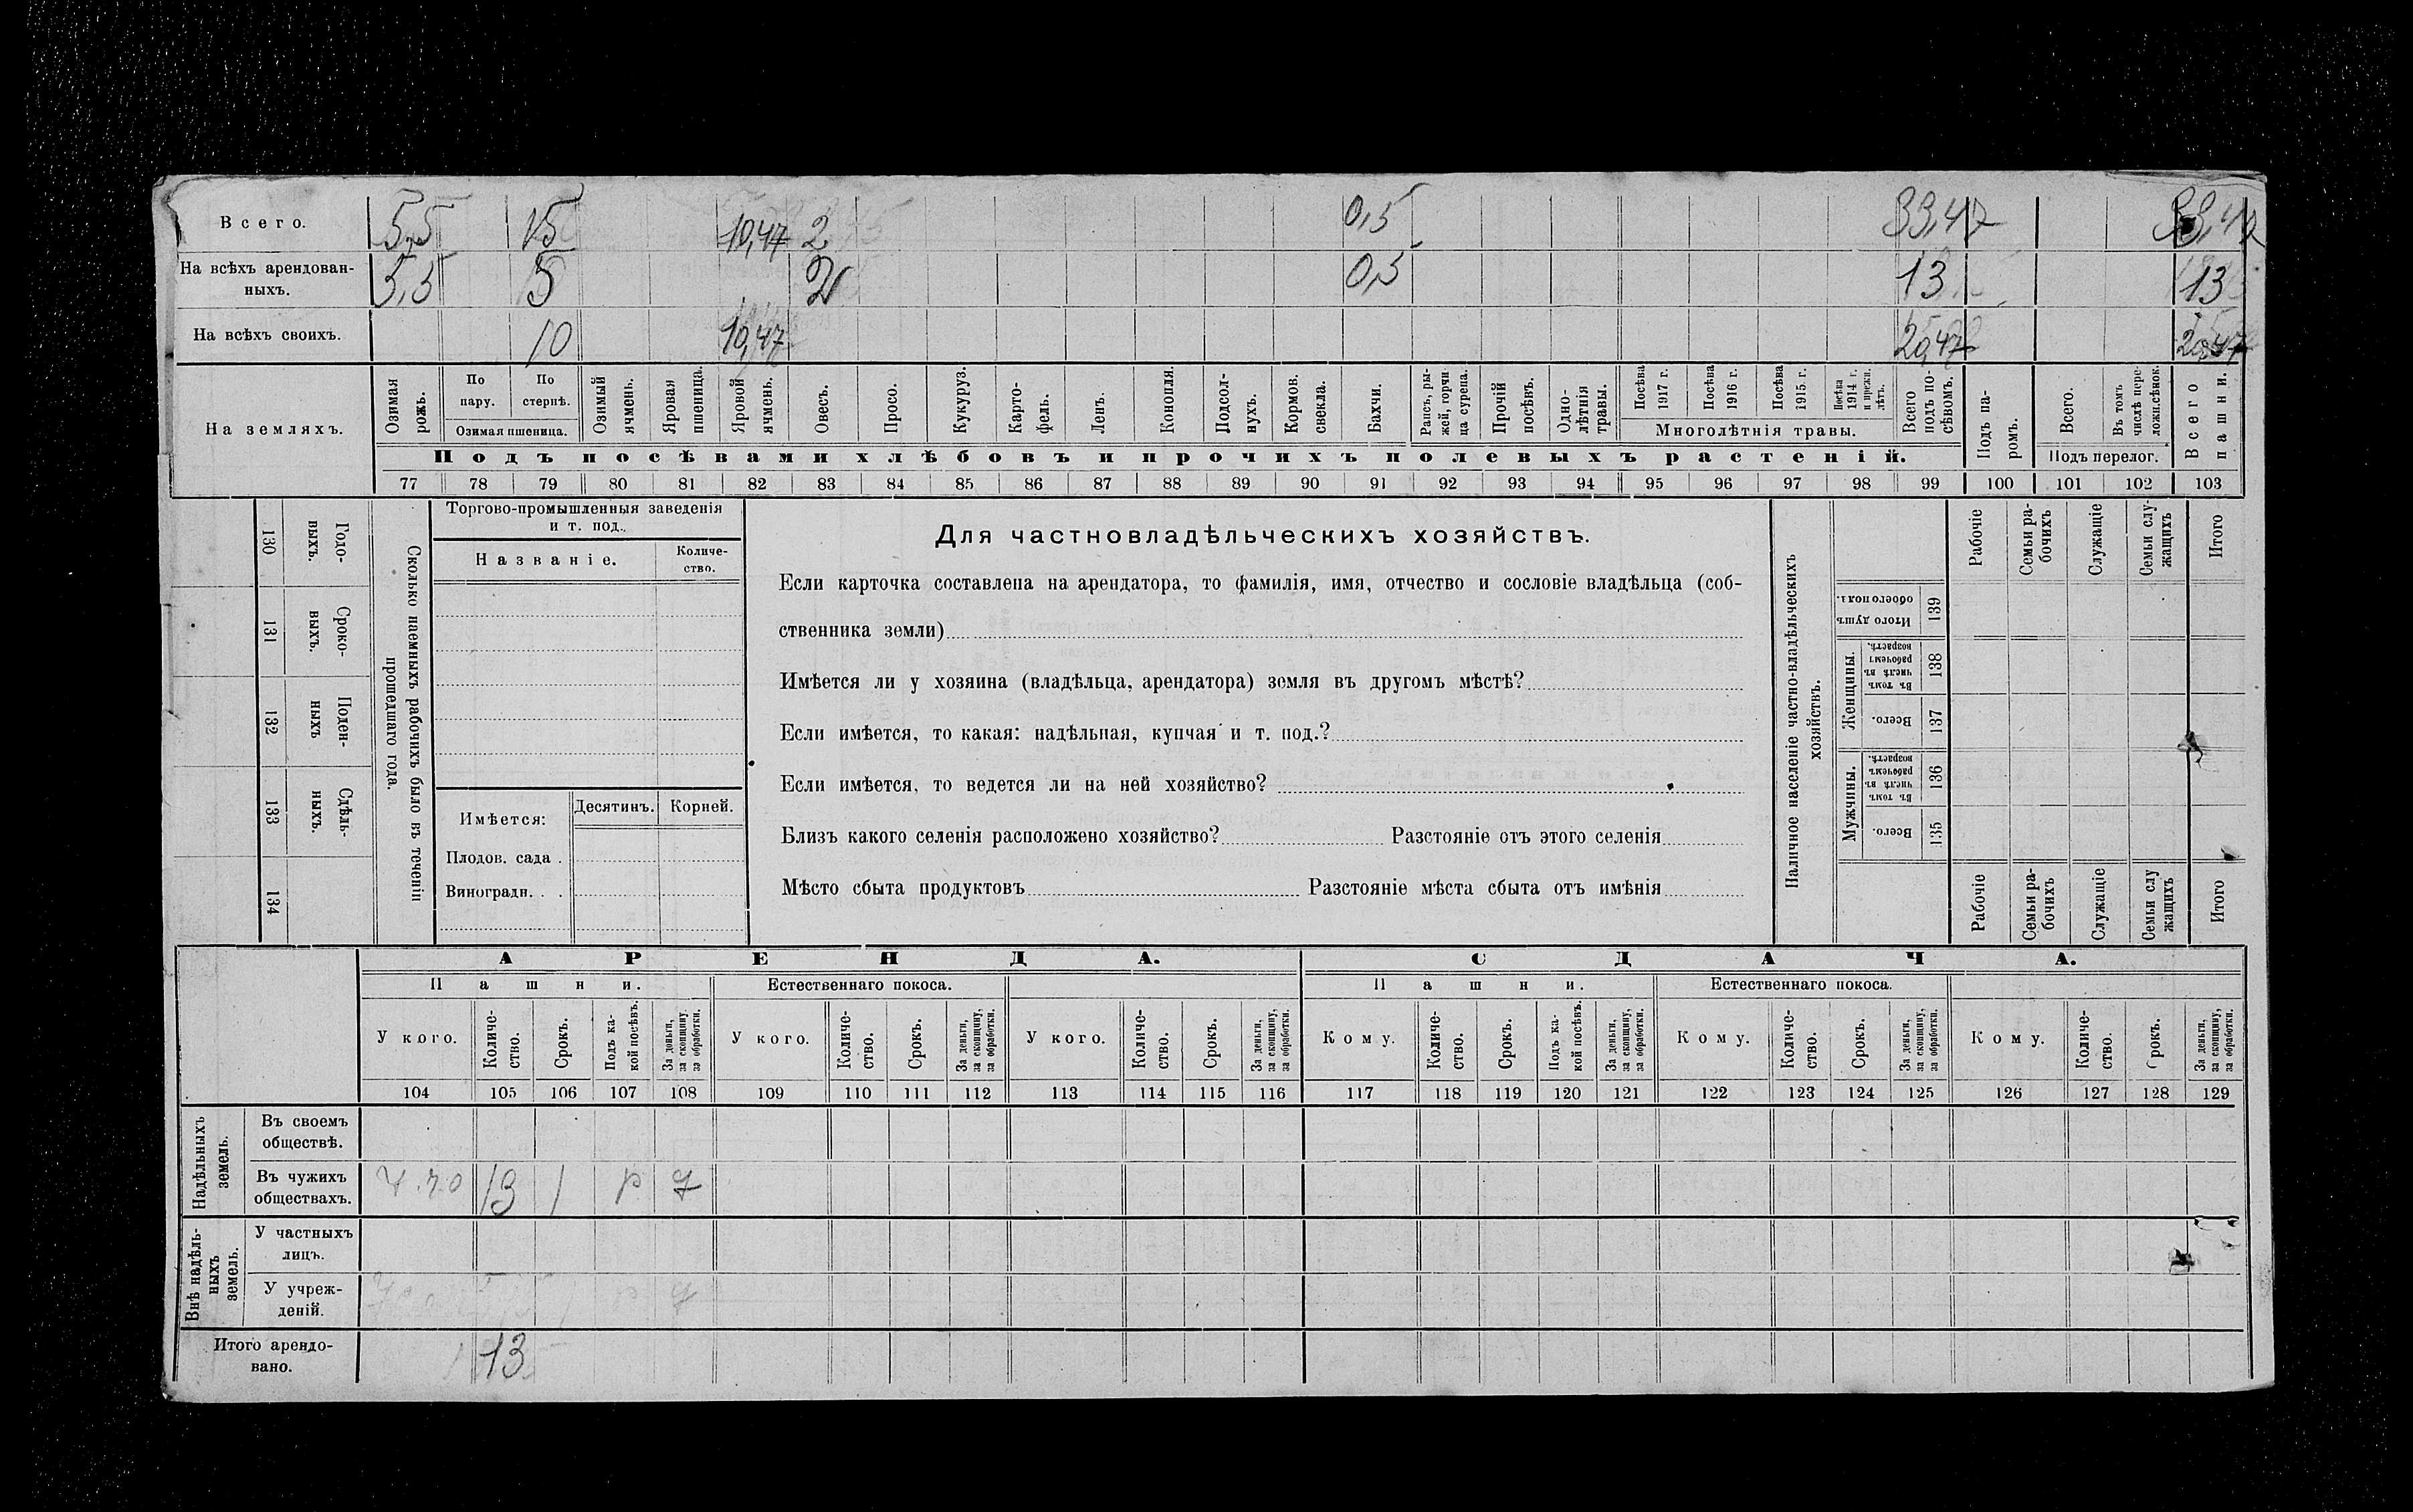 Всего. 5,5 15 10,47 2 0,5 33,47 33,47
На всѣхъ арендован-
ныхъ. 5,5 5 2 0,5 13 13
На всѣхъ своихъ. 10 10,47 20,47 20,47
На земляхъ.
Озимая
рожь.
По
пару.
По
стернѣ.
Озимая пшеница.
Озимый
ячмень.
Яровая
пшеница.
Яровой
ячмень.
Овесъ.
Просо.
Кукуруз.
Карто-
фель.
Ленъ.
Конопля.
Подсол-
нухъ.
Кормов.
свекла.
Бахчи.
Рапсъ, ры-
жей, горчи
ца сурепа.
Прочій
посѣвъ.
Одно-
лѣтнія
травы.
Посѣва
1917 г.
Посѣва
1916 г.
Посѣва
1915 г.
Посѣва
1914 г.
и прежн.
лѣтъ.
Многолѣтнія травы.
Всего
подъ по-
сѣвомъ.
Подъ па-
ромъ.
Всего.
Въ томъ
числѣ пере-
ложн.сѣнок.
Подъ перелог.
Всего
пашни.
Подъ посѣвами хлѣбовъ и прочихъ полевыхъ растеній.
77 78 79 80 81 82 83 84 85 86 87 88 89 90 91 92 93 94 95 96 97 98 99 100 101 102 103
130 Годо-
выхъ.
131 Сроко-
выхъ.
132 Поден-
ныхъ
133 Сдѣль-
ныхъ.
134
Сколько наемныхъ рабочихъ было въ теченіи
прошедшаго года.
Торгово-промышленныя заведенія
и т. под.
Названіе.
Количе-
ство.
Имѣется:
Десятинъ. Корней.
Плодов. сада .
Виноградн. . .
Для частновладѣльческихъ хозяйствъ.
Если карточка составлена на арендатора, то фамилія, имя, отчество и сословіе владѣльца (соб-
ственника земли)
Имѣется ли у хозяина (владѣльца, арендатора) земля въ другомъ мѣстѣ?
Если имѣется, то какая: надѣльная, купчая и т. под.?
Если имѣется, то ведется ли на ней хозяйство?
Близь какого селенія расположено хозяйство? Разстояніе отъ этого селенія
Мѣсто сбыта продуктовъ Разстояніе мѣста сбыта отъ имѣнія
Наличное населеніе частно-владѣльческихъ
хозяйствъ.
Рабочіе
Семьи ра-
бочихъ
Служащіе
Семьи слу-
жащихъ
Итого
Итого душъ
обоего пола.
139
Женщины.
Въ томъ
числѣ въ
рабочемъ
возрастѣ.
138
Всего.
137
Мужчины.
Въ томъ
числѣ въ
рабочемъ
возрастѣ.
136
Всего.
135
Рабочіе
Семьи ра-
бочихъ
Служащіе
Семьи слу
жащихъ
Итого
АРЕНДА. СДАЧА.
Пашни. Естественнаго покоса. Пашни. Естественнаго покоса.
У кого.
Количе-
ство.
Срокъ.
Подъ ка-
кой посѣвъ.
За деньги,
за скопщину,
за обработки.
У кого.
Количе-
ство.
Срокъ.
За деньги,
за скопщину,
за обработки.
У кого.
Количе-
ство.
Срокъ.
За деньги,
за скопщину,
за обработки.
Кому.
Количе-
ство.
Срокъ.
Подъ ка-
кой посѣвъ.
За деньги,
за скопщину,
за обработки.
Кому.
Количе-
ство.
Срокъ.
За деньги,
за скопщину,
за обработки.
Кому.
Количе-
ство.
Срокъ.
За деньги,
за скопщину,
за обработки.
104 105 106 107 108 109 110 111 112 113 114 115 116 117 118 119 120 121 122 123 124 125 126 127 128 129
Надѣльныхъ
земель.
Въ своемъ
обществѣ.
Въ чужихъ
обществахъ. 13 1 р
Внѣ надѣль-
ныхъ
земель.
У частныхъ
лицъ.
У учреж-
деній.
Итого арендо-
вано. 13